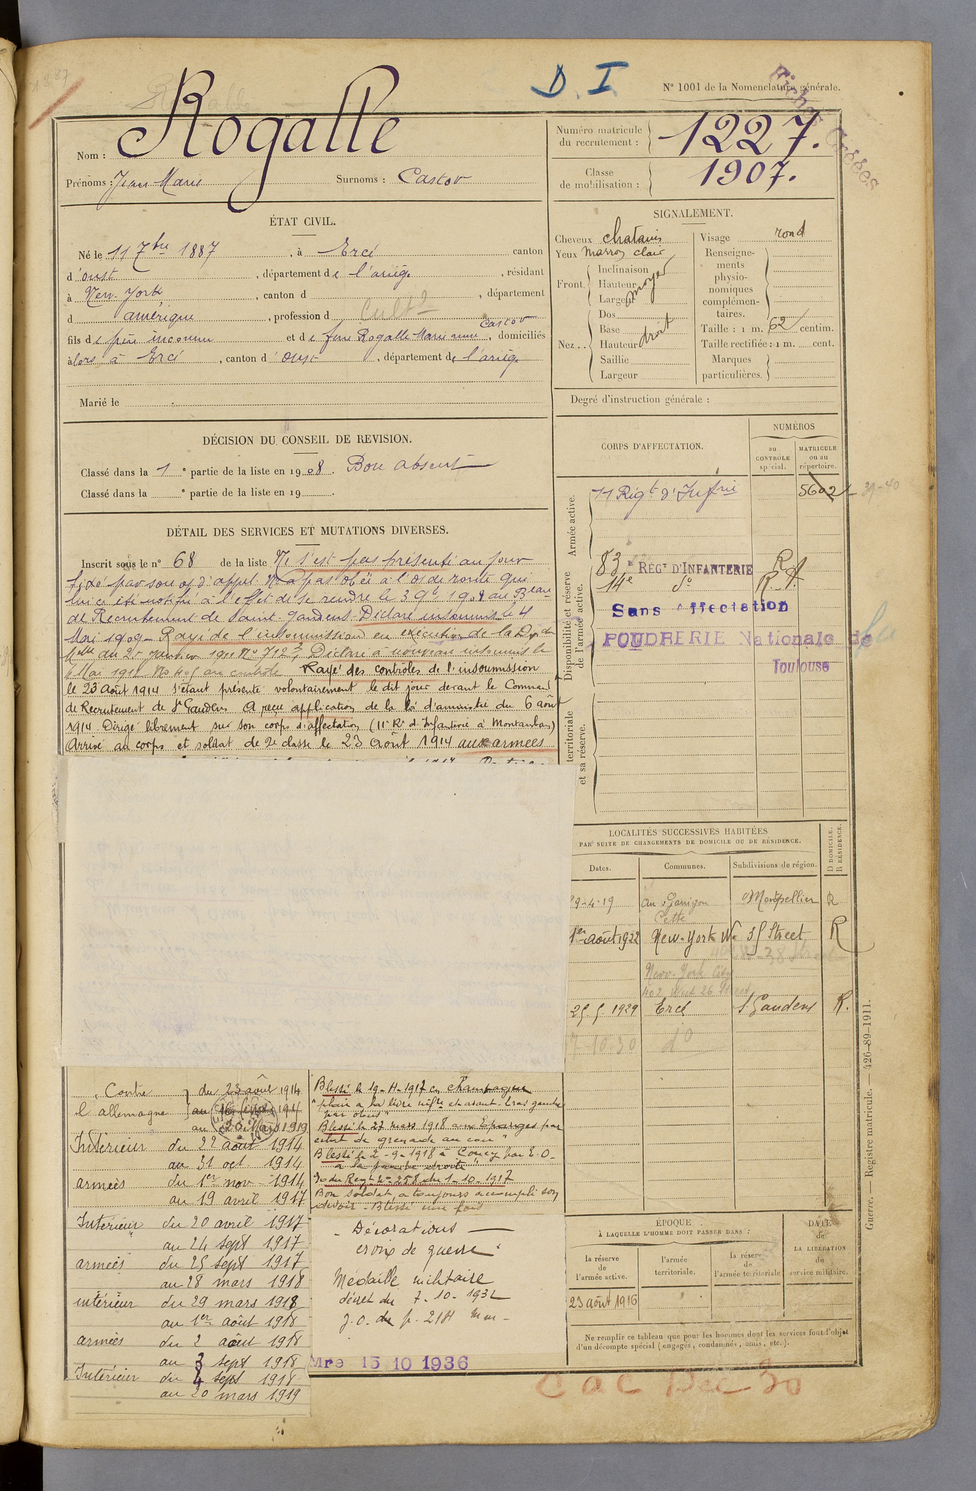 D. I
N° 1001 de la Nomenclature générale.
Nom : Rogalle
Prénoms : Jean Marie Surnoms : Castor
Numéro matricule du recrutement : 1227.
Classe de mobilisation : 1907.
ÉTAT CIVIL.
Né le 11 7bre 1887, à Ercé canton
d'oust, département de l'ariège, résidant
à New York, canton d , département
d amérique, profession d Cult
fils de père inconnu et de feue Rogalle Marie Castor, domiciliés
alors à Ercé, canton d'oust, département de l'ariège
Marié le
SIGNALEMENT.
Cheveux chatains
Yeux marron clair
Front. Inclinaison
Hauteur moyen
Largeur
Nez.. Dos
Base
Hauteur droit
Saillie
Largeur
Visage rond
Renseignements physionomiques complémentaires.
Taille : 1 m. 62 centim.
Taille rectifiée : 1 m. cent.
Marques particulières.
Degré d'instruction générale :
DÉCISION DU CONSEIL DE REVISION.
Classé dans la 1e partie de la liste en 1908. Bon absent
Classé dans la e partie de la liste en 19
DÉTAIL DES SERVICES ET MUTATIONS DIVERSES.
Inscrit sous le n° 68 de la liste Ne s'est pas présenté au jour
fixé par son o/ d'appel N'a pas obéi à l'o/ de route qui
lui a été notifié à l'effet de se rendre le 3 9bre 1908 au Bureau
de Recrutement de Saint-Gaudens. Déclaré insoumis le 4
Mai 1909 - Rayé de l'insoumission en exécution de la Dépêche
Déclaré à nouveau insoumis le
Rayé des contrôles de l'insoumission
le 23 Août 1914 s'étant présenté volontairement le dit jour devant le Command
de Recrutement de St Gaudens A reçu application de la loi d'amnistie du 6 août
1914 Dirigé librement sur son corps d'affectation (11e Rt d'Infanterie à Montauban)
Arrivé au corps et soldat de 2e classe le 23 août 1914 aux armées
CORPS D'AFFECTATION.
NUMÉROS
au CONTRÔLE spécial.
MATRICULE ou au répertoire.
Armée active.
11 Régt d'Inf
5602
39-40
Disponibilité et réserve de l'armée active.
83e RÉGt D'INFANTERIE
14e do
Sans affectation
POUDRERIE Nationale de
Toulouse
territoriale et sa réserve.
LOCALITÉS SUCCESSIVES HABITÉES
PAR SUITE DE CHANGEMENTS DE DOMICILE OU DE RÉSIDENCE.
Dates. Communes. Subdivisions de région. D DOMICILE. R RÉSIDENCE.
9-4-19 Cette Montpellier R
1er août 1922 New-York Street R
New-York City
402 West 26 Street
1929 Ercé St Gaudens R.
10-30 do
Contre l'allemagne du 23 août 1914
Intérieur du 22 août 1914
au 31 oct 1914
armées du 1er nov 1914
au 19 avril 1917
Intérieur du 20 avril 1917
au 24 sept 1917
armées du 25 sept 1917
au 28 mars 1918
intérieur du 29 mars 1918
au 1er août 1918
armées du 2 août 1918
au 3 sept 1918
Intérieur du 4 sept 1918
au 20 mars 1919
Blessé le 19-4-1917 en champagne
"plaie à la lèvre infre et avant-bras gauche
par obus"
Blessé le 27 mars 1918
éclat de grenade au cou"
Blessé le 2-9-1918 à Coucy par E.O.
à la jambe droite
o du Regt n° 258 du 1-10-1917
Bon soldat, a toujours accompli son
devoir - Blessé une fois
- Décorations -
croix de guerre
Médaille militaire
décret du 7-10-193
J.O. du
Mre 15 10 1936
ÉPOQUE
À LAQUELLE L'HOMME DOIT PASSER DANS :
la réserve de l'armée active.
l'armée territoriale.
la réserve de l'armée territoriale
DATE de LA LIBÉRATION du service militaire.
23 août 1916
Ne remplir ce tableau que pour les hommes dont les services font l'objet
d'un décompte spécial (engagés, condamnés, omis, etc.).
Guerre. — Registre matricule. — 426-89-1911.
CaC Dec 30